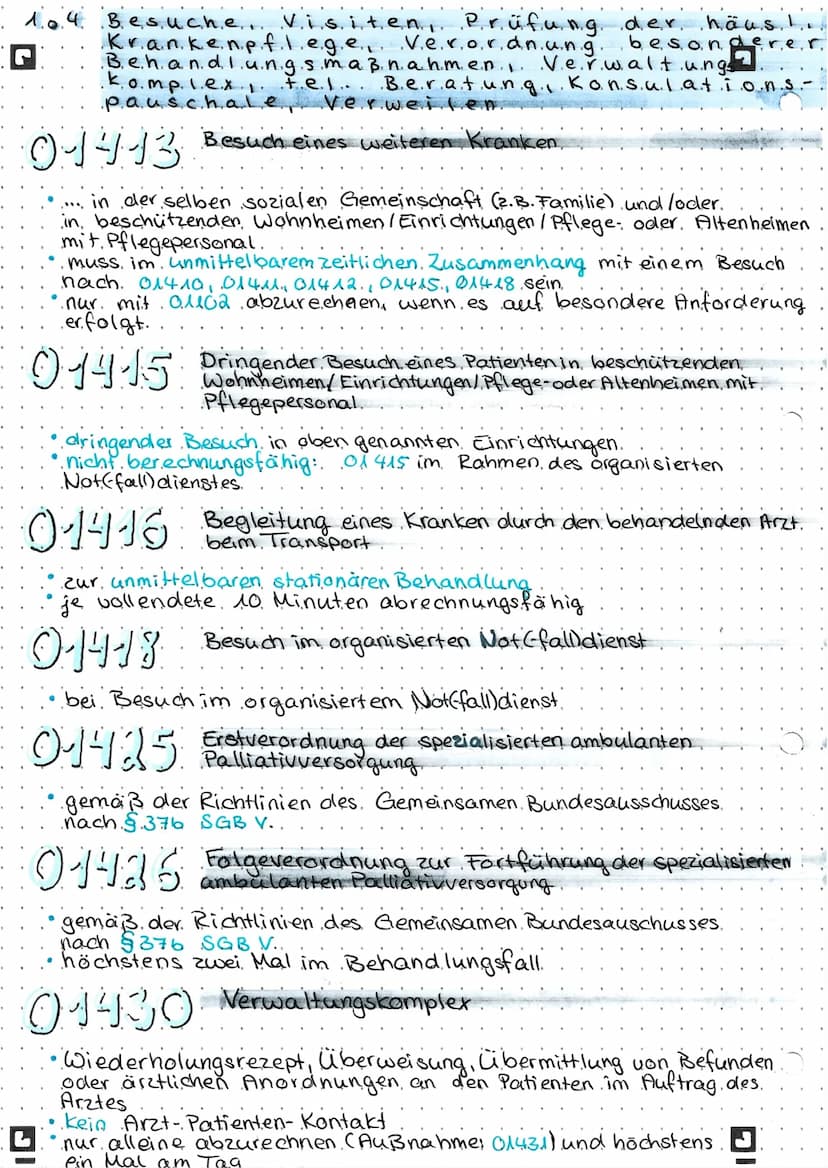 1.4 Besuche, Visiten, Prüfung der häusl.
Krankenpflege, Verordnung besonderer
Behandlungsmaßnahmen, Verwaltungs
komplex, tel. Beratung, Konsulations-
pauschale, Verweilen
01413 Besuch eines weiteren Kranken
• ... in der selben sozialen Gemeinschaft (z.B. Familie) und/oder
in beschützenden Wohnheimen/Einrichtungen/Pflege- oder Altenheimen
mit Pflegepersonal
• muss im unmittelbarem zeitlichen Zusammenhang mit einem Besuch
nach 01410, 01411, 01412, 01415, 01418 sein
• nur mit 01102 abzurechnen, wenn es auf besondere Anforderung
erfolgt.
01415 Dringender Besuch eines Patienten in beschützenden
Wohnheimen/Einrichtungen/Pflege- oder Altenheimen mit
Pflegepersonal
• dringender Besuch in oben genannten Einrichtungen
• nicht berechnungsfähig: 01415 im Rahmen des organisierten
Not(-fall)dienstes
01416 Begleitung eines Kranken durch den behandelnden Arzt
beim Transport
• zur unmittelbaren stationären Behandlung
• je vollendete 10 Minuten abrechnungsfähig
01418 Besuch im organisierten Not(-fall)dienst
• bei Besuch im organisiertem Not(-fall)dienst
01425 Erstverordnung der spezialisierten ambulanten
Palliativversorgung
• gemäß der Richtlinien des Gemeinsamen Bundesausschusses
nach § 37b SGB V.
01426 Folgeverordnung zur Fortführung der spezialisierten
ambulanten Palliativversorgung
• gemäß der Richtlinien des Gemeinsamen Bundesauschusses
nach § 37b SGB V.
• höchstens zwei Mal im Behandlungsfall
01430 Verwaltungskomplex
• Wiederholungsrezept, Überweisung, Übermittlung von Befunden
oder ärztlichen Anordnungen an den Patienten im Auftrag des
Arztes
• kein Arzt-Patienten-Kontakt
• nur alleine abzurechnen (Außnahme: 01431) und höchstens
ein Mal am Tag